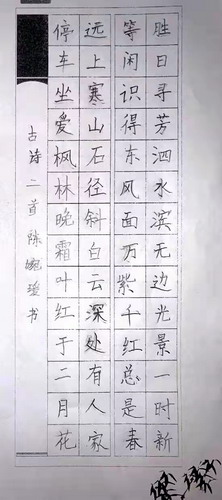 胜日寻芳泗水滨无边光景一时新
等闲识得东风面万紫千红总是春
远上寒山石径斜白云深处有人家
停车坐爱枫林晚霜叶红于二月花
古诗二首陈婉书